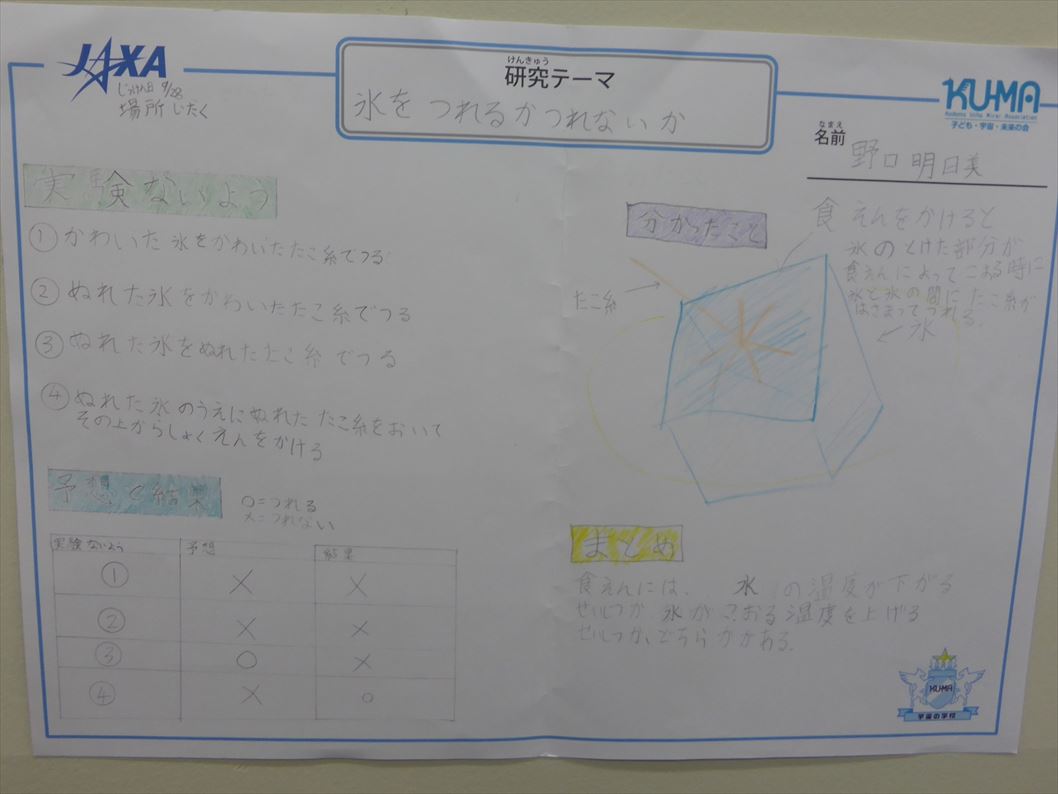 JAXA
じっけん日 9/28
場所 じたく
けんきゅう
研究テーマ
氷を つれるか つれないか
KU-MA
子ども・宇宙・未来の会
なまえ
名前
野口 明日美
実験ないよう
① かわいた 氷をかわいたたこ糸でつる
② ぬれた氷をかわいたたこ糸でつる
③ ぬれた氷をぬれたたこ糸でつる
④ ぬれた氷のうえにぬれた たこ糸をおいて
その上からしょくえんをかける
予想と結果
○=つれる
×=つれない
実験ないよう 予想 結果
① × ×
② × ×
③ ○ ×
④ × ○
分かったこと
食えんをかけると
氷のとけた部分が
食えんによってこおる時に
氷と氷の間にたこ糸が
はさまってつれる.
たこ糸
氷
まとめ
食えんには、 氷の温度が下がる
せいしつか 氷がこおる温度を上げる
せいしつか、どちらかがある.
KU-MA
宇宙の学校